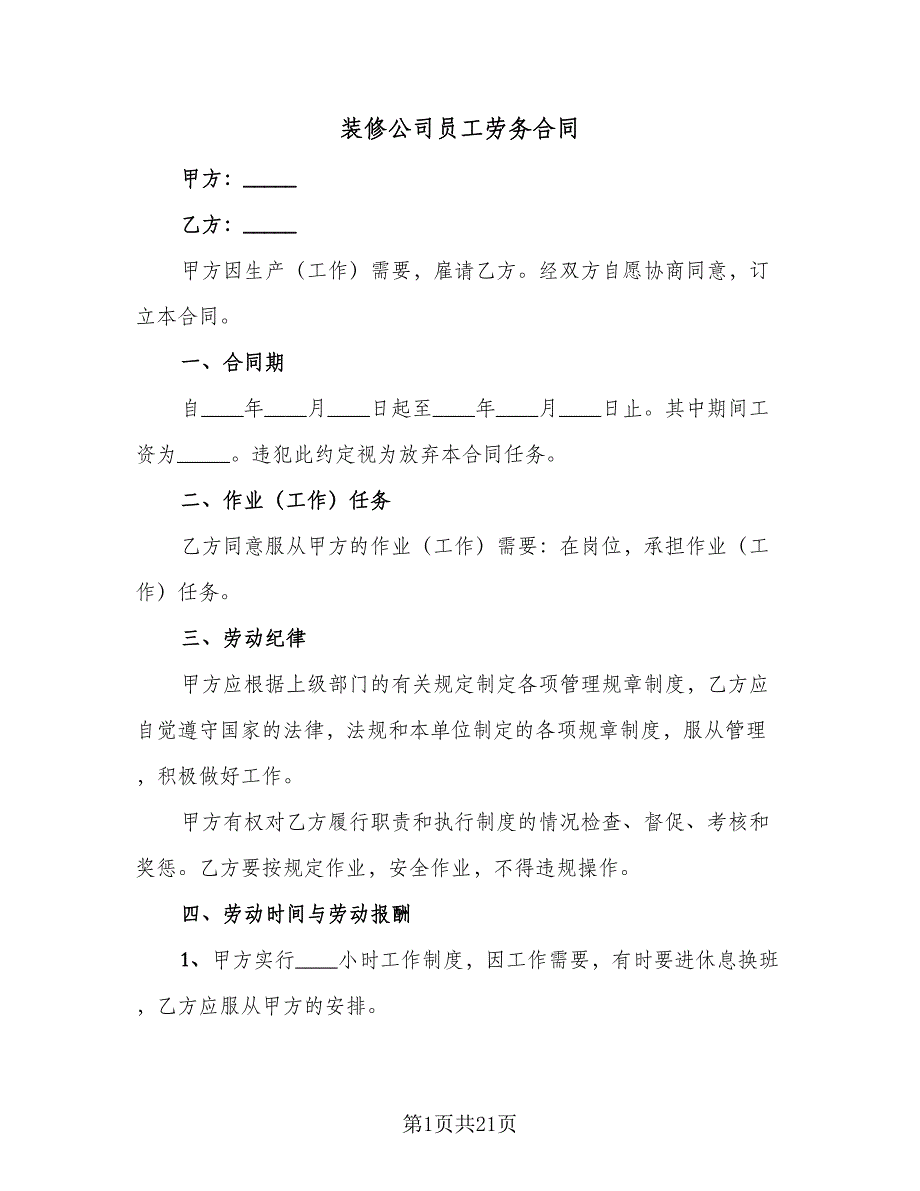 装修公司员工劳务合同
甲方：_____
乙方：_____
甲方因生产（工作）需要，雇请乙方。经双方自愿协商同意，订
立本合同。
一、合同期
自____年____月____日起至____年____月____日止。其中期间工
资为_____。违犯此约定视为放弃本合同任务。
二、作业（工作）任务
乙方同意服从甲方的作业（工作）需要：在岗位，承担作业（工
作）任务。
三、劳动纪律
甲方应根据上级部门的有关规定制定各项管理规章制度，乙方应
自觉遵守国家的法律，法规和本单位制定的各项规章制度，服从管理
，积极做好工作。
甲方有权对乙方履行职责和执行制度的情况检查、督促、考核和
奖惩。乙方要按规定作业，安全作业，不得违规操作。
四、劳动时间与劳动报酬
1、甲方实行____小时工作制度，因工作需要，有时要进休息换班
，乙方应服从甲方的安排。
第1页共21页